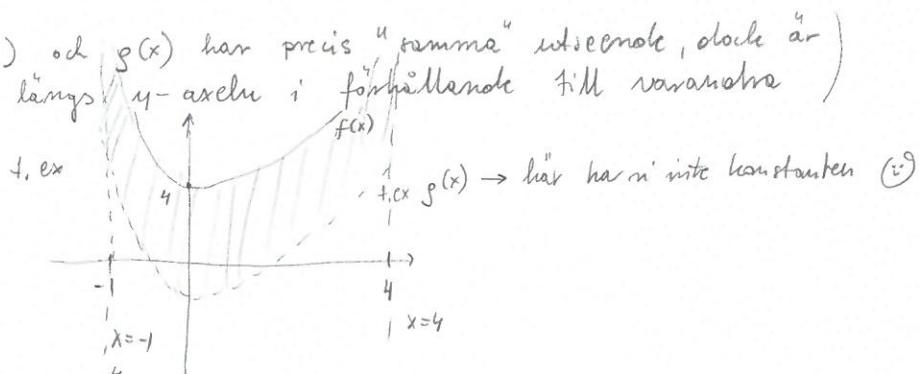 ) och g(x) har precis "samma" utseende, dock är
längs y-axeln i förhållande till varandra )
f(x)
t. ex
4
t.ex g(x) → här har vi inte konstanten ☺
-1
4
x=-1
x=4